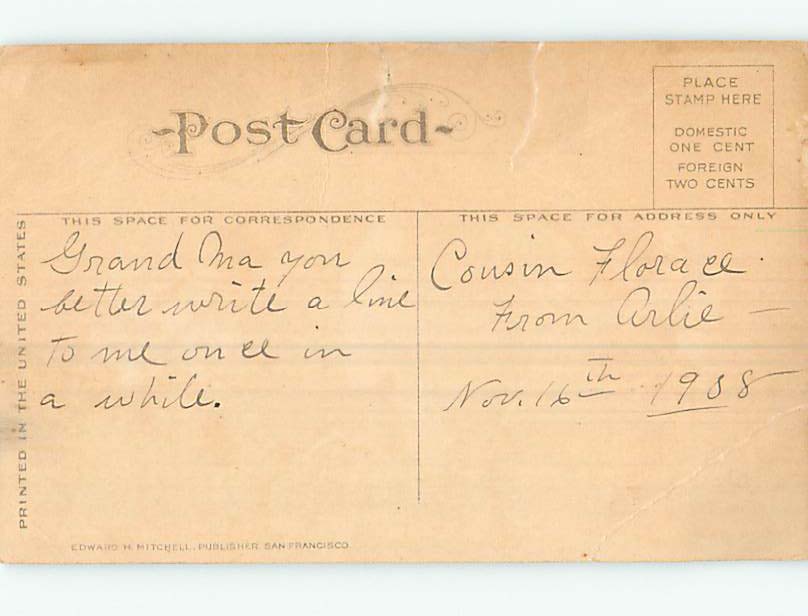 PLACE
STAMP HERE
DOMESTIC
ONE CENT
FOREIGN
TWO CENTS
-Post Card-
THIS SPACE FOR CORRESPONDENCE
THIS SPACE FOR ADDRESS ONLY
PRINTED IN THE UNITED STATES
Grand Ma you
better write a line
to me once in
a while.
Cousin Florace.
From Arlie —
Nov. 16th 1908
EDWARD H. MITCHELL, PUBLISHER, SAN FRANCISCO.